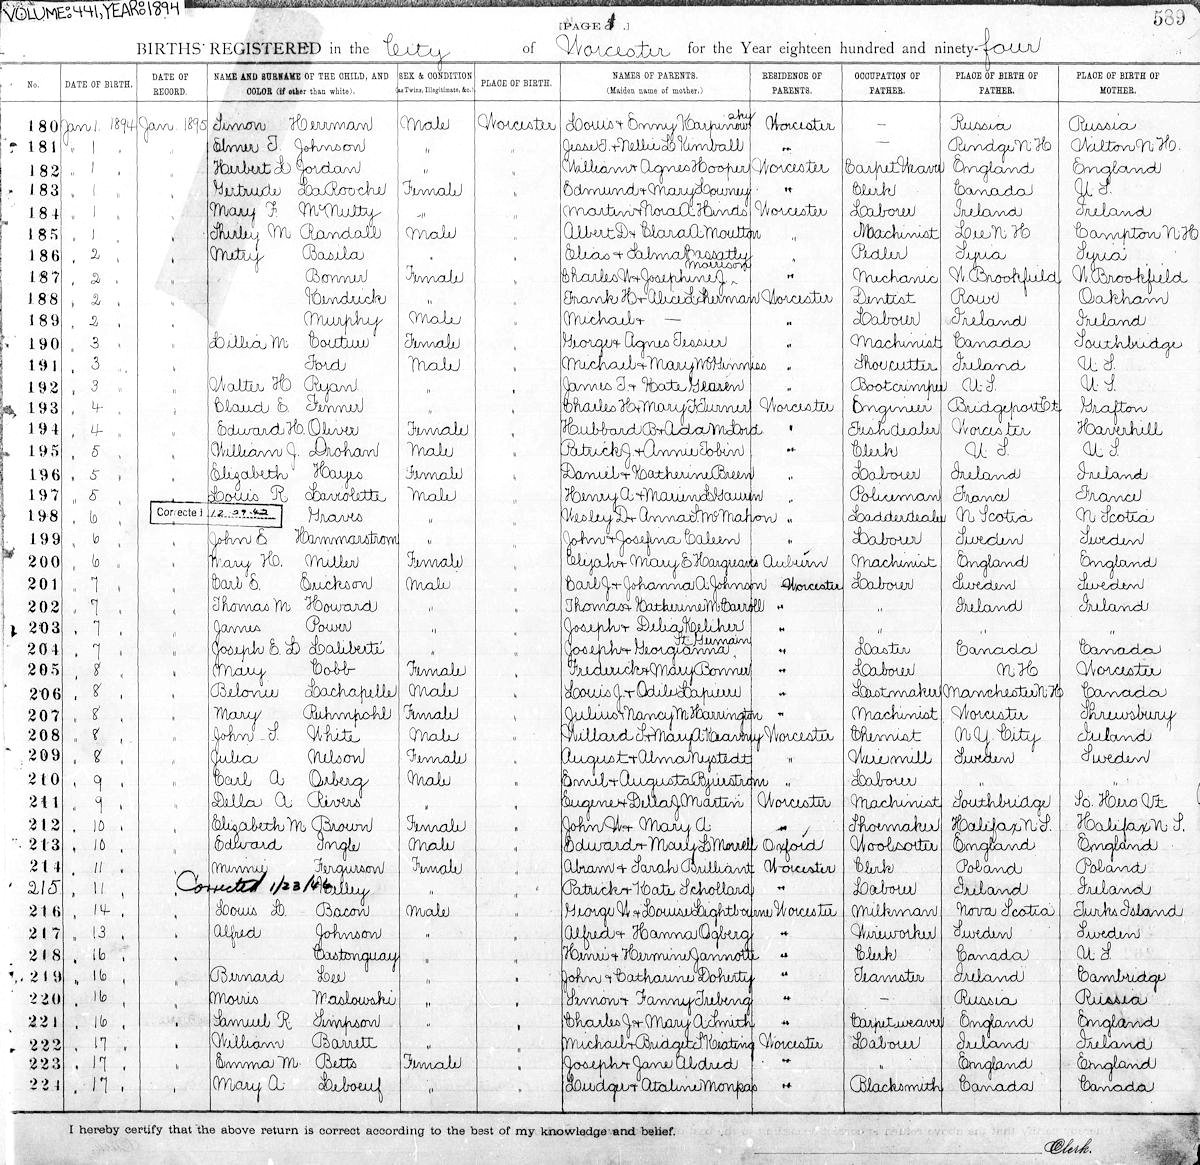 VOLUME: 441, YEAR: 1894
589
[PAGE 1.]
BIRTHS REGISTERED in the City of Worcester for the Year eighteen hundred and ninety-four
No. DATE OF BIRTH. DATE OF RECORD. NAME AND SURNAME OF THE CHILD, AND COLOR (if other than white). SEX & CONDITION (as Twins, Illegitimate, &c.) PLACE OF BIRTH. NAMES OF PARENTS. (Maiden name of mother.) RESIDENCE OF PARENTS. OCCUPATION OF FATHER. PLACE OF BIRTH OF FATHER. PLACE OF BIRTH OF MOTHER.
180 Jan 1 1894 Jan 1895 Simon Herrman Male Worcester Louis & Enny Karpinowsky Worcester — Russia Russia
181 " 1 " " Elmer T. Johnson " " Jesse T. & Nellie L Kimball " — Rindge N H Wilton N H.
182 " 1 " " Herbert L Jordan " " William & Agnes Hooper Worcester Carpet Weaver England England
183 " 1 " " Gertrude LaRooche Female " Edmund & Mary Lowney " Clerk Canada U. S.
184 " 1 " " Mary F. McNulty " " Martin & Nora A. Hinds Worcester Laborer Ireland Ireland
185 " 1 " " Shirley M Randall Male " Albert D & Clara A Moulton " Machinist Lee N H Campton N H
186 " 2 " " Metry Basila " " Elias & Salma Cassatly " Pedler Syria Syria
187 " 2 " " Bonner Female " Charles W & Josephine J. Morrison " Mechanic W. Brookfield W. Brookfield
188 " 2 " " Kendrick " " Frank H & Alice L Sherman Worcester Dentist Rowe Oakham
189 " 2 " " Murphy Male " Michael & — " Laborer Ireland Ireland
190 " 3 " " Lillia M Couture Female " George & Agnes Tessier " Machinist Canada Southbridge
191 " 3 " " Ford Male " Michael & Mary McGinniss " Shoecutter Ireland U. S.
192 " 3 " " Walter H Ryan " " James T & Kate Gearen " Bootcrimper U. S. U. S.
193 " 4 " " Claud E. Fenner " " Charles H & Mary F Turner Worcester Engineer Bridgeport Ct Grafton
194 " 4 " " Edward H. Oliver Female " Hubbard B & Ada M Lord " Fishdealer Worcester Haverhill
195 " 5 " " William J. Drohan Male " Patrick J & Annie Tobin " Clerk U. S. U. S.
196 " 5 " " Elizabeth Hayes Female " Daniel & Katherine Breen " Laborer Ireland Ireland
197 " 5 " " Louis R Laviolette Male " Henry A & " Policeman France France
198 " 6 " Corrected 12.29.42 Graves " " Wesley D & Anna S McMahon " Ladderdealer N Scotia N Scotia
199 " 6 " " John E Hammarstrom " " John & Josefina Caleen " Laborer Sweden Sweden
200 " 6 " " Mary H. Miller Female " Elijah & Mary E Hargreaves Auburn Machinist England England
201 " 7 " " Carl E. Erickson Male " Carl J & Johanna A Johnson Worcester Laborer Sweden Sweden
202 " 7 " " Thomas M Howard " " Thomas & Katherine McCarroll " " Ireland Ireland
203 " 7 " " James Power " " Joseph & Delia Keliher " " " "
204 " 7 " " Joseph E. D Laliberté " " Joseph & Georgianna St Germain " Laster Canada Canada
205 " 8 " " Mary Cobb Female " Frederick & Mary Bonner " Laborer N H Worcester
206 " 8 " " Belonie Lachapelle Male " Louis J & Odile Lapierre " Lastmaker Manchester N H Canada
207 " 8 " " Mary Ruhmpohl Female " Julius & Nancy M Harrington " Machinist Worcester Shrewsbury
208 " 8 " " John S. White Male " Willard S & Mary A Kearney Worcester Chemist N. Y. City Ireland
209 " 8 " " Julia Nelson Female " August & Alma Nystedt " Wire mill Sweden Sweden
210 " 9 " " Carl A Orberg Male " Emil & Augusta Bjurstrom " Laborer " "
211 " 9 " " Della A Rivers " " Eugene & Della J. Martin Worcester Machinist Southbridge So. Hero Vt
212 " 10 " " Elizabeth M Brown Female " John W & Mary A " Shoemaker Halifax N. S. Halifax N. S.
213 " 10 " " Edward Ingle Male " Edward & Mary L Morrell Oxford Woolsorter England England
214 " 11 " " Minnie Ferguson Female " Abram & Sarah Brilliant Worcester Clerk Poland Poland
215 " 11 " Corrected 1/23/46 Kelley " Patrick & Kate Schollard " Laborer Ireland Ireland
216 " 14 " " Louis L. Bacon Male " George W & Louise Lightbourne Worcester Milkman Nova Scotia Turks Island
217 " 13 " " Alfred Johnson " " Alfred & Hanna Ogberg " Wireworker Sweden Sweden
218 " 16 " " Castonguay " " Henri & Hermine Jannotte " Clerk Canada U. S.
219 " 16 " " Bernard Lee " " John & Catharine Doherty " Teamster Ireland Cambridge
220 " 16 " " Morris Maslowski " " Simon & Fanny Trebeng " — Russia Russia
221 " 16 " " Samuel R Simpson " " Charles J & Mary A Smith " Carpet weaver England England
222 " 17 " " William Barrett " " Michael & Bridget T Keating Worcester Laborer Ireland Ireland
223 " 17 " " Emma M. Betts Female " Joseph & Jane Aldred " " England England
224 " 17 " " Mary A Leboeuf " " Ludger & Ataline Monpas " Blacksmith Canada Canada
I hereby certify that the above return is correct according to the best of my knowledge and belief.
Clerk.